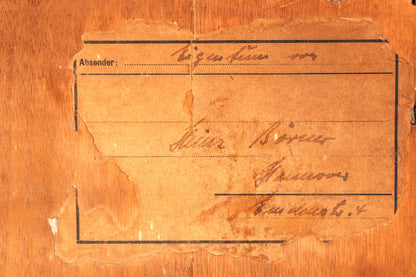 Absender: Eigentum von
Heinz Börner
Hannover
Emdenstr. 4